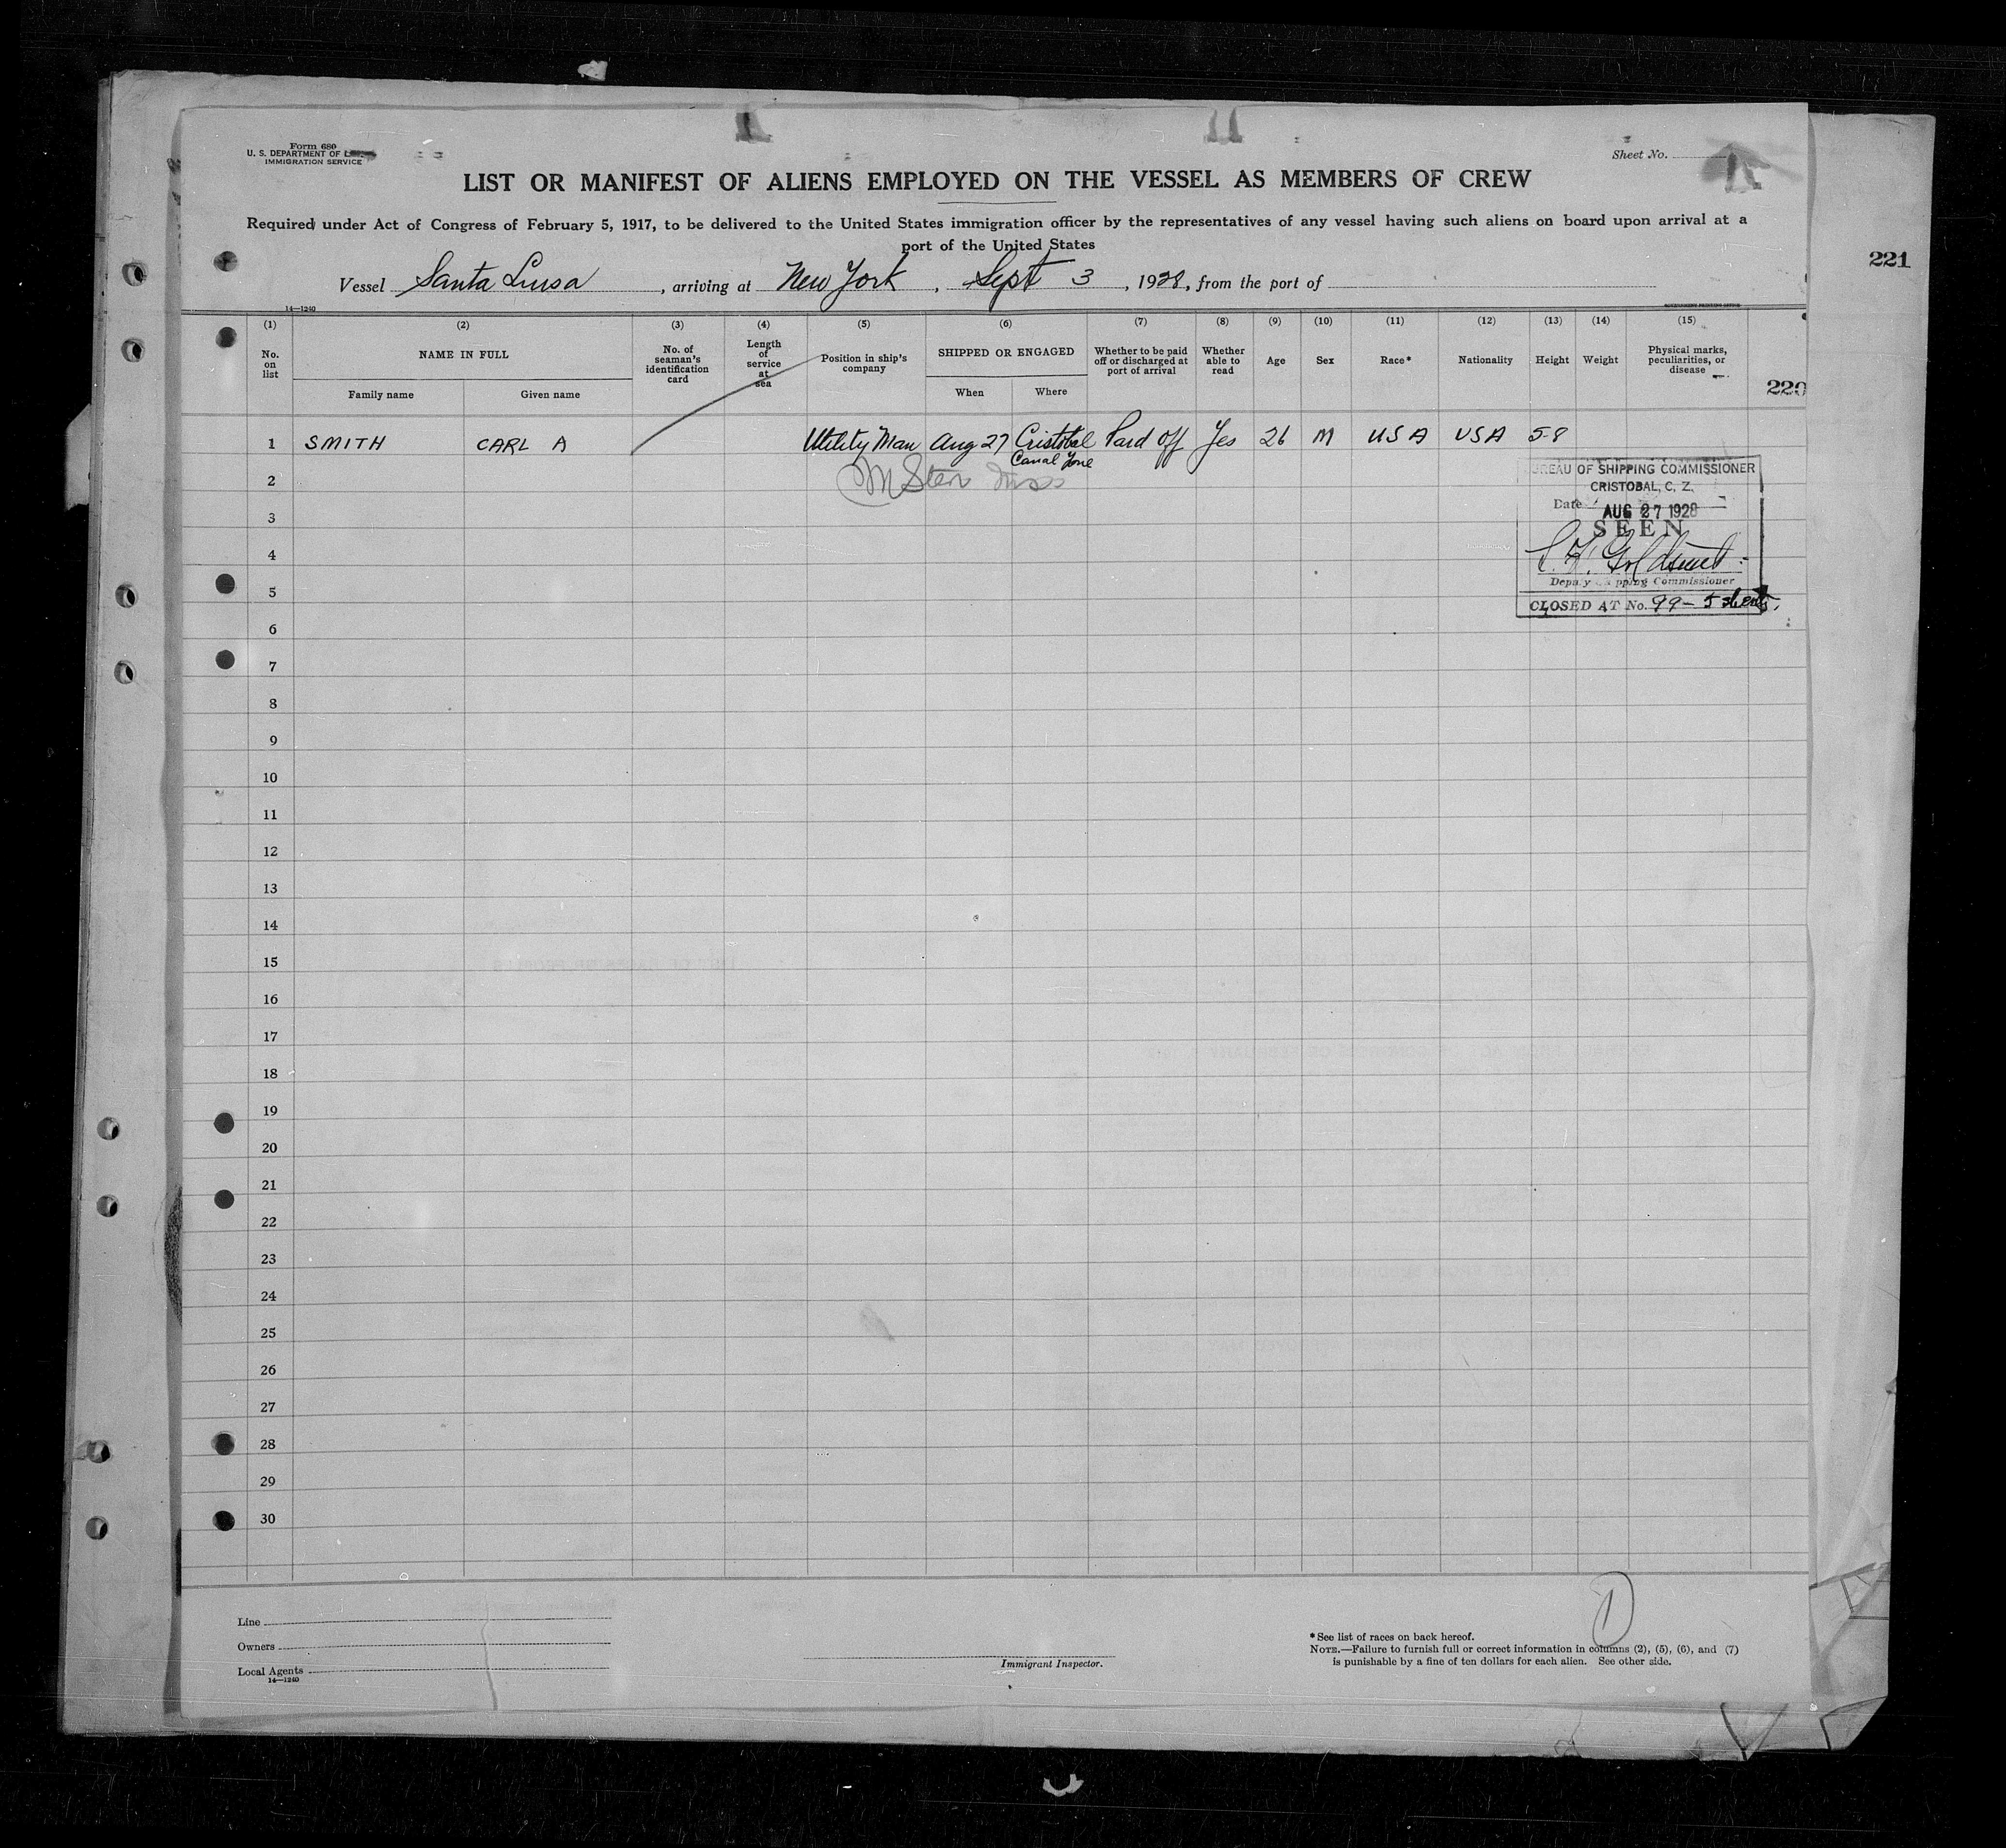 Form 680
U. S. DEPARTMENT OF
IMMIGRATION SERVICE
Sheet No.
LIST OR MANIFEST OF ALIENS EMPLOYED ON THE VESSEL AS MEMBERS OF CREW
Required under Act of Congress of February 5, 1917, to be delivered to the United States immigration officer by the representatives of any vessel having such aliens on board upon arrival at a
port of the United States
221
Vessel Santa Luisa, arriving at New York, Sept 3, 1928, from the port of
14—1240
GOVERNMENT PRINTING OFFICE
(1) (2) (3) (4) (5) (6) (7) (8) (9) (10) (11) (12) (13) (14) (15)
No. on list
NAME IN FULL
Family name
Given name
No. of seaman's identification card
Length of service at sea
Position in ship's company
SHIPPED OR ENGAGED
When
Where
Whether to be paid off or discharged at port of arrival
Whether able to read
Age
Sex
Race*
Nationality
Height
Weight
Physical marks, peculiarities, or disease
220
1 SMITH CARL A Utility Man Aug 27 Cristobal Paid Off Yes 26 M USA USA 5-8
Canal Zone
2
BUREAU OF SHIPPING COMMISSIONER
CRISTOBAL, C. Z.
3
Date AUG 27 1928
SEEN
4
Deputy Shipping Commissioner
5
CLOSED AT No. 99- 5 sheets.
6
7
8
9
10
11
12
13
14
15
16
17
18
19
20
21
22
23
24
25
26
27
28
29
30
1
Line
Owners
Local Agents
14—1240
Immigrant Inspector.
*See list of races on back hereof.
NOTE.—Failure to furnish full or correct information in columns (2), (5), (6), and (7)
is punishable by a fine of ten dollars for each alien. See other side.